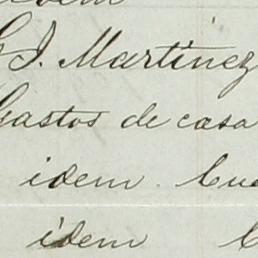 J. Martinez
Gastos de casa
idem.
idem